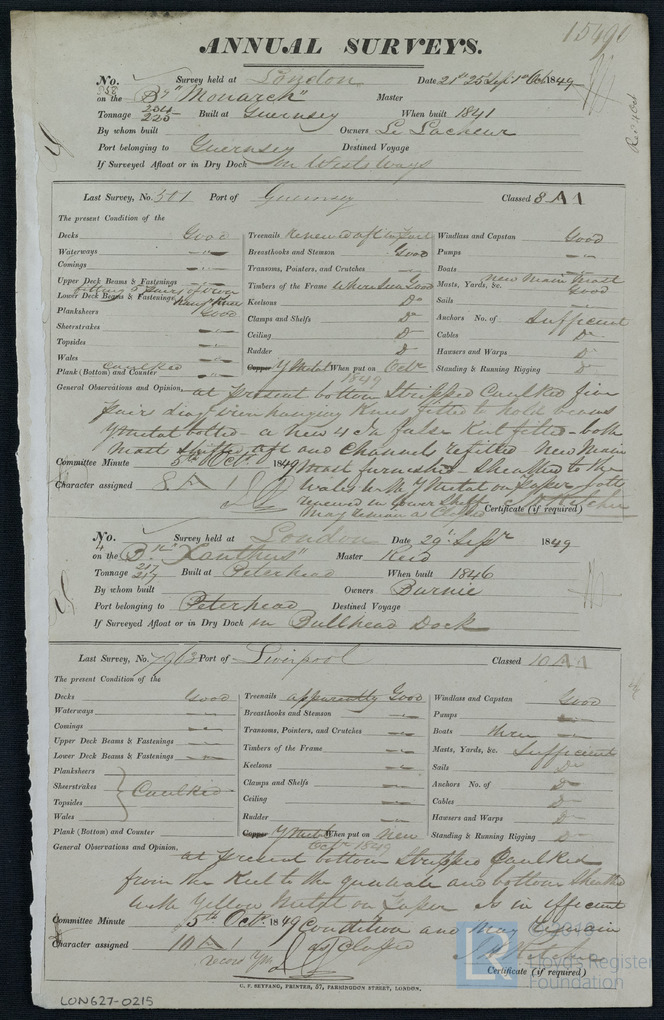 15490
ANNUAL SURVEYS.
No. 358 Survey held at London Date 21st 25 Sep 1st Oct 1849
on the Bg "Monarch" Master
Tonnage 204 220 Built at Guernsey When built 1841
By whom built Owners Le Lacheur
Port belonging to Guernsey Destined Voyage
If Surveyed Afloat or in Dry Dock on West's Ways
Rec 4 Oct
Last Survey, No. 501 Port of Guernsey Classed 8 A 1
The present Condition of the
Decks Good Treenails renewed aft Windlass and Capstan Good
Waterways Breasthooks and Stemson Good Pumps
Comings Transoms, Pointers, and Crutches Boats
Upper Deck Beams & Fastenings Timbers of the Frame Where seen Good Masts, Yards, &c. New Main Mast Good
Lower Deck Beams & Fastenings Keelsons Do Sails
Planksheers Good Clamps and Shelfs Do Anchors No. of Sufficient
Sheerstrakes Ceiling Do Cables Do
Topsides Rudder Do Hawsers and Warps Do
Wales Copper Y Metal When put on Octr 1849 Standing & Running Rigging Do
Plank (Bottom) and Counter Caulked
General Observations and Opinion, at present bottom Stripped Caulked five
pairs diagl iron hanging Knees fitted to hold beams
Y Metal bolted - a new 4 in false Keel fitted - both
Mast aft and Channels refitted New Main
Committee Minute 5th Octr. 1849 Mast furnished - Sheathed to the
Character assigned 8 A 1 Wales with Y Metal on paper
renewed in lower
may remain as Classed Certificate (if required)
No. 4 Survey held at London Date 29th Septr 1849
on the Bk "Xanthus" Master Reid
Tonnage 217 217 Built at Peterhead When built 1846
By whom built Owners Burnie
Port belonging to Peterhead Destined Voyage
If Surveyed Afloat or in Dry Dock in Bullhead Dock
Last Survey, No. 7963 Port of Liverpool Classed 10 A 1
The present Condition of the
Decks Good Treenails apparently Good Windlass and Capstan Good
Waterways Breasthooks and Stemson Pumps
Comings Transoms, Pointers, and Crutches Boats three
Upper Deck Beams & Fastenings Timbers of the Frame Masts, Yards, &c. Sufficient
Lower Deck Beams & Fastenings Keelsons Sails Do
Planksheers Clamps and Shelfs Anchors No. of Do
Sheerstrakes Caulked Ceiling Cables Do
Topsides Rudder Hawsers and Warps Do
Wales Copper Y Metal When put on New Octr 1849 Standing & Running Rigging Do
Plank (Bottom) and Counter
General Observations and Opinion, at present bottom Stripped Caulked
from the Keel to the and bottom Sheathed
with Yellow Metal on Paper is in efficient
Committee Minute 5th Octr. 1849 Condition and may remain
Character assigned 10 A 1 as Classed
Certificate (if required)
G. F. SEYFANG, PRINTER, 57, FARRINGDON STREET, LONDON.
LON627-0215
LR
Lloyd's Register
Foundation